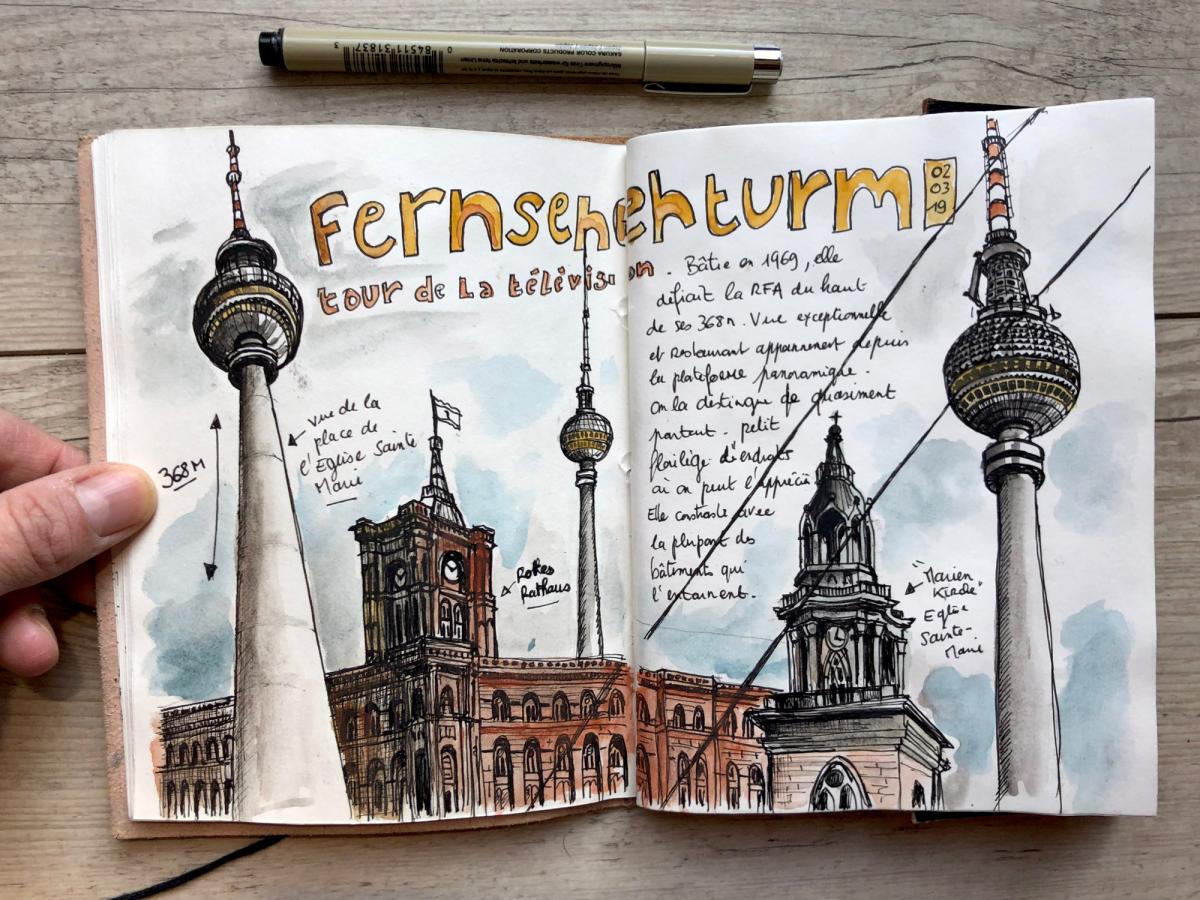 SAKURA COLOR PRODUCTS CORPORATION
0 84511 31837 3
Fernsehehturm
02
03
19
tour de la télévision
. Bâtie en 1969, elle
défiait la RFA du haut
de ses 368m. Vue exceptionnelle
et restaurant apparement depuis
la plateforme panoramique.
On la distingue de quasiment
partout. petit
florilège d'endroits
où on peut l'apprécier
Elle contraste avec
la plupart des
bâtiments qui
l'entourent.
368M
vue de la
place de
l'Eglise Sainte
Marie
Rotes
Rathaus
"Marien
Kirche"
Eglise
Sainte-
Marie